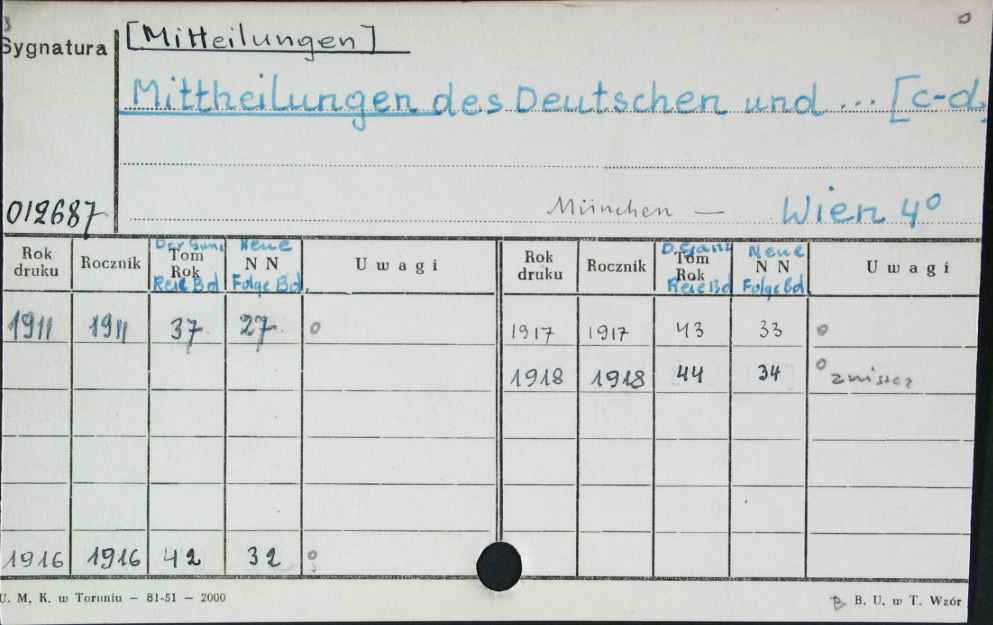 Sygnatura [Mitteilungen]
Mittheilungen des Deutschen und ... [c-d]
012687 München — Wien 4º
Rok druku Rocznik Der Ganz Tom Rok Reie Bd Neue N N Folge Bd. Uwagi Rok druku Rocznik D. Ganz Tom Rok Reie Bd Neue N N Folge Bd Uwagi
1911 1911 37 27 o 1917 1917 43 33 o
1918 1918 44 34 o zniszcz
1916 1916 42 32 o
U. M. K. w Toruniu — 81-51 — 2000 B. U. w T. Wzór